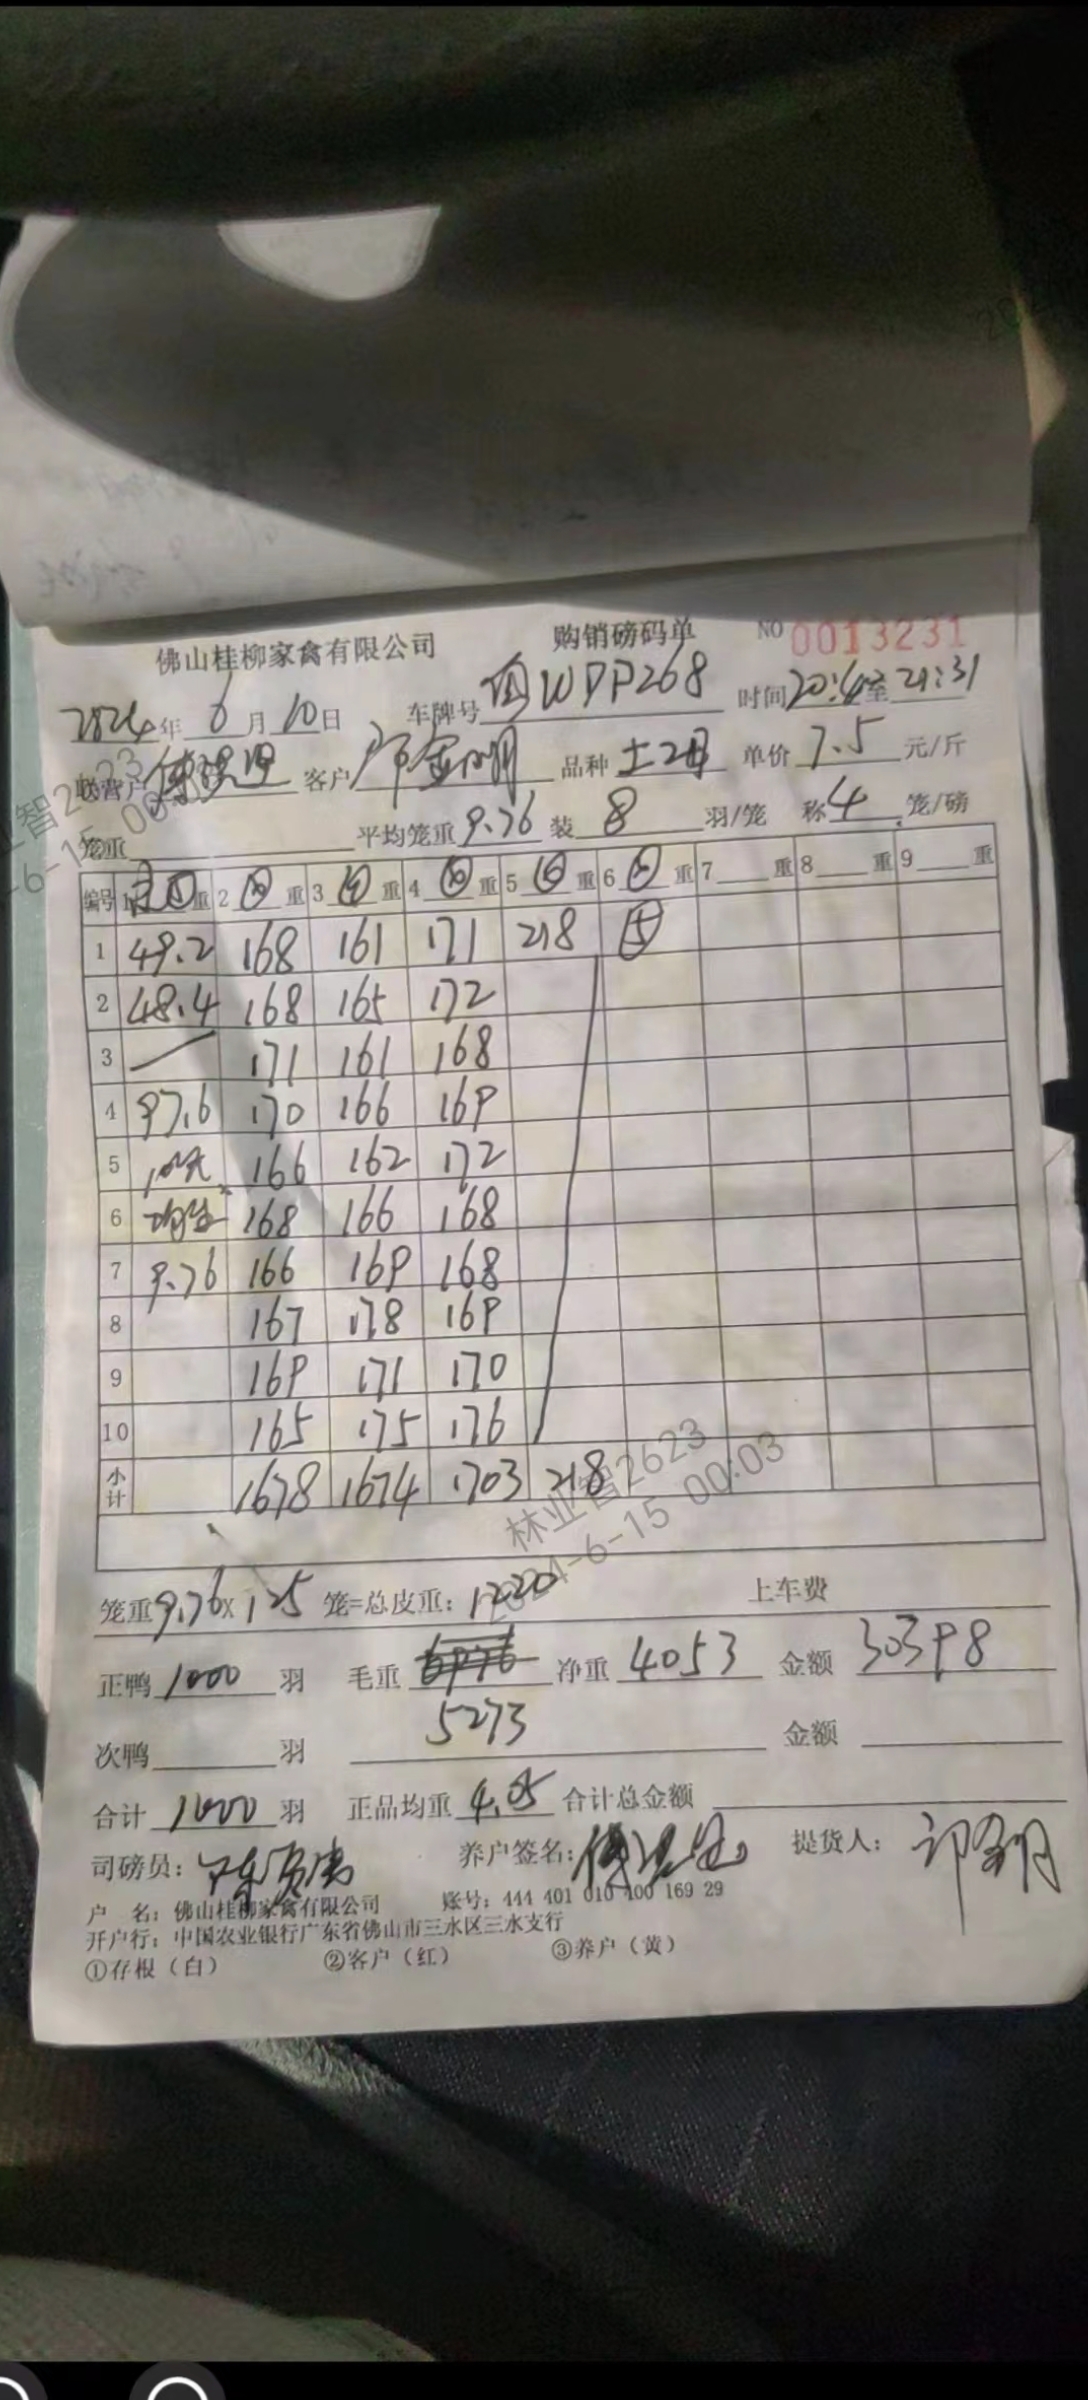 佛山桂柳家禽有限公司 购销磅码单 NO 0013231
2024年 6月 10日 车牌号 WDP268 时间 20: 至 21:31
联营户 客户 品种 土2母 单价 7.5 元/斤
笼重 平均笼重 9.76 装 8 羽/笼 称 4 笼/磅
编号 1 重 2 重 3 重 4 重 5 重 6 重 7 重 8 重 9 重
1 49.2 168 161 171 218 ⑤
2 48.4 168 165 172
3 171 161 168
4 97.6 170 166 169
5 166 162 172
6 168 166 168
7 9.76 166 169 168
8 167 178 169
9 169 171 170
10 165 175 176
小计 1678 1674 1703 218
笼重 9.76 x 125 笼=总皮重: 1220 上车费
正鸭 1000 羽 毛重 净重 4053 金额 30398
5273
次鸭 羽 金额
合计 1000 羽 正品均重 4.05 合计总金额
司磅员: 养户签名: 提货人:
户 名: 佛山桂柳家禽有限公司 账号: 444 401 010 400 169 29
开户行: 中国农业银行广东省佛山市三水区三水支行
①存根(白) ②客户(红) ③养户(黄)
林业智2623
2024-6-15 00:03